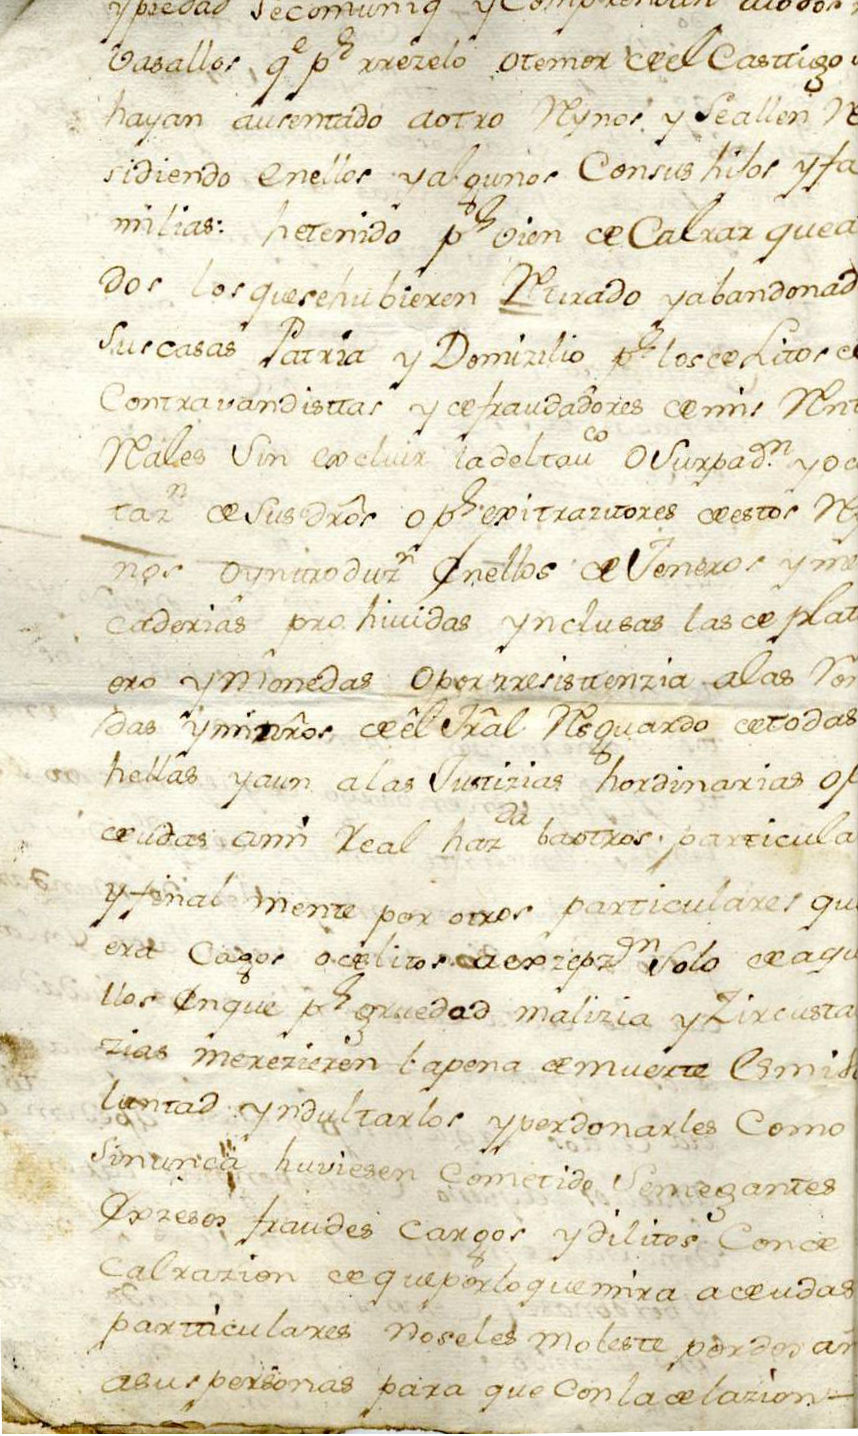 ypiedad Secomuniq y Comprendan atodos
Vasallos qe pr rrezelo otemor de el Casttigo
hayan ausentado aotro Rynos y Seallen Re
sidiendo enellos yalgunos Consus hijos yfa
milias: hetenido pr vien de Calrar que a
dos losquesehubieren Retirado yabandonad
Suscasas Patria y Domizilio pr los delitos de
Contravandisttas y defraudadores demis Rent
Rales Sin excluir ladeltavco OSurpadn yoc
tazn de Susdros o pr extrazttores deestos Ry
nos oyntroduzn Enellos de Jeneros y me
caderias prohividas ynclusas las de plat
oro y Monedas Oporrresisttenzia alas Ron
das yministros de el Jral Resguardo detodas
hellas yaun alas Justizias hordinarias op
deudas ami Real hazda baotros particula
yfinal mente por otros particulares qu
era Cagos odelitos aexzepzon Solo de aque
llos Enque pr gruedad malizia y Zircusta
zias merezieren lapena demuerte Esmi
luntad yndultarlos yperdonarles Como
Sinunca huviesen Cometido Semegantes
Exzesos fraudes Cargos ydilitos Conde
Calrazion de queporloquemira adeudas
partticulares noseles moleste pordos añ
asus personas para que Conladelazion